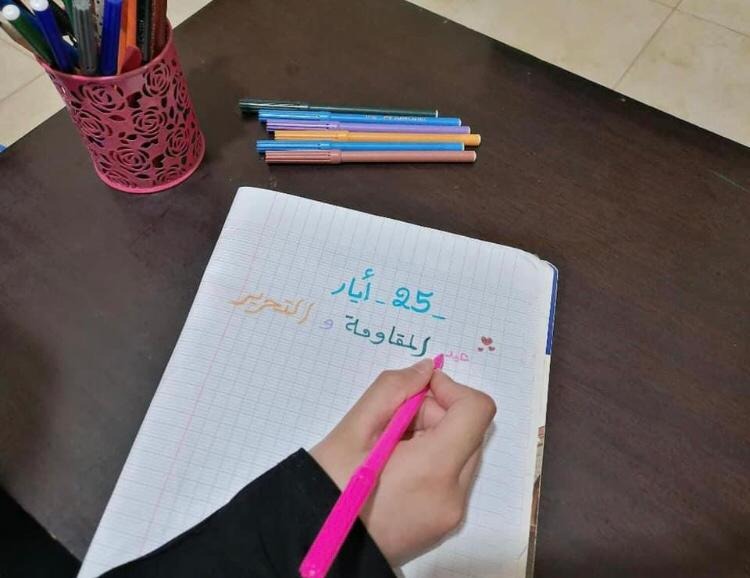 _ 25 _ أيار
عيد المقاومة و التحرير